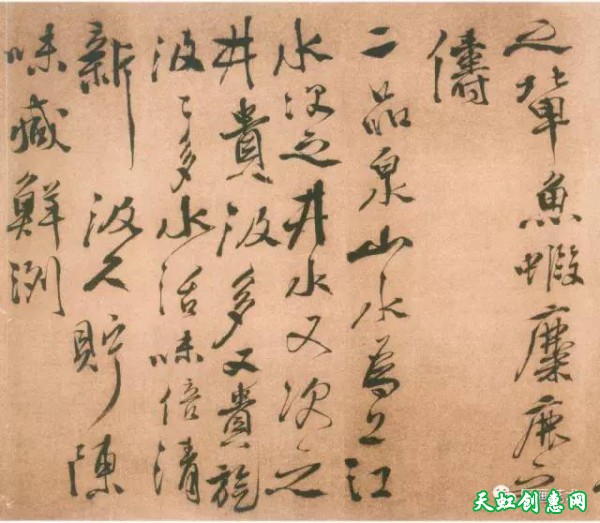 之輩魚蝦麋鹿之
儔
二品泉山水為上江
水次之井水又次之
井貴汲多又貴旋
汲〻多水活味倍清
新汲久貯陳
味減鮮洌
天虹创惠网